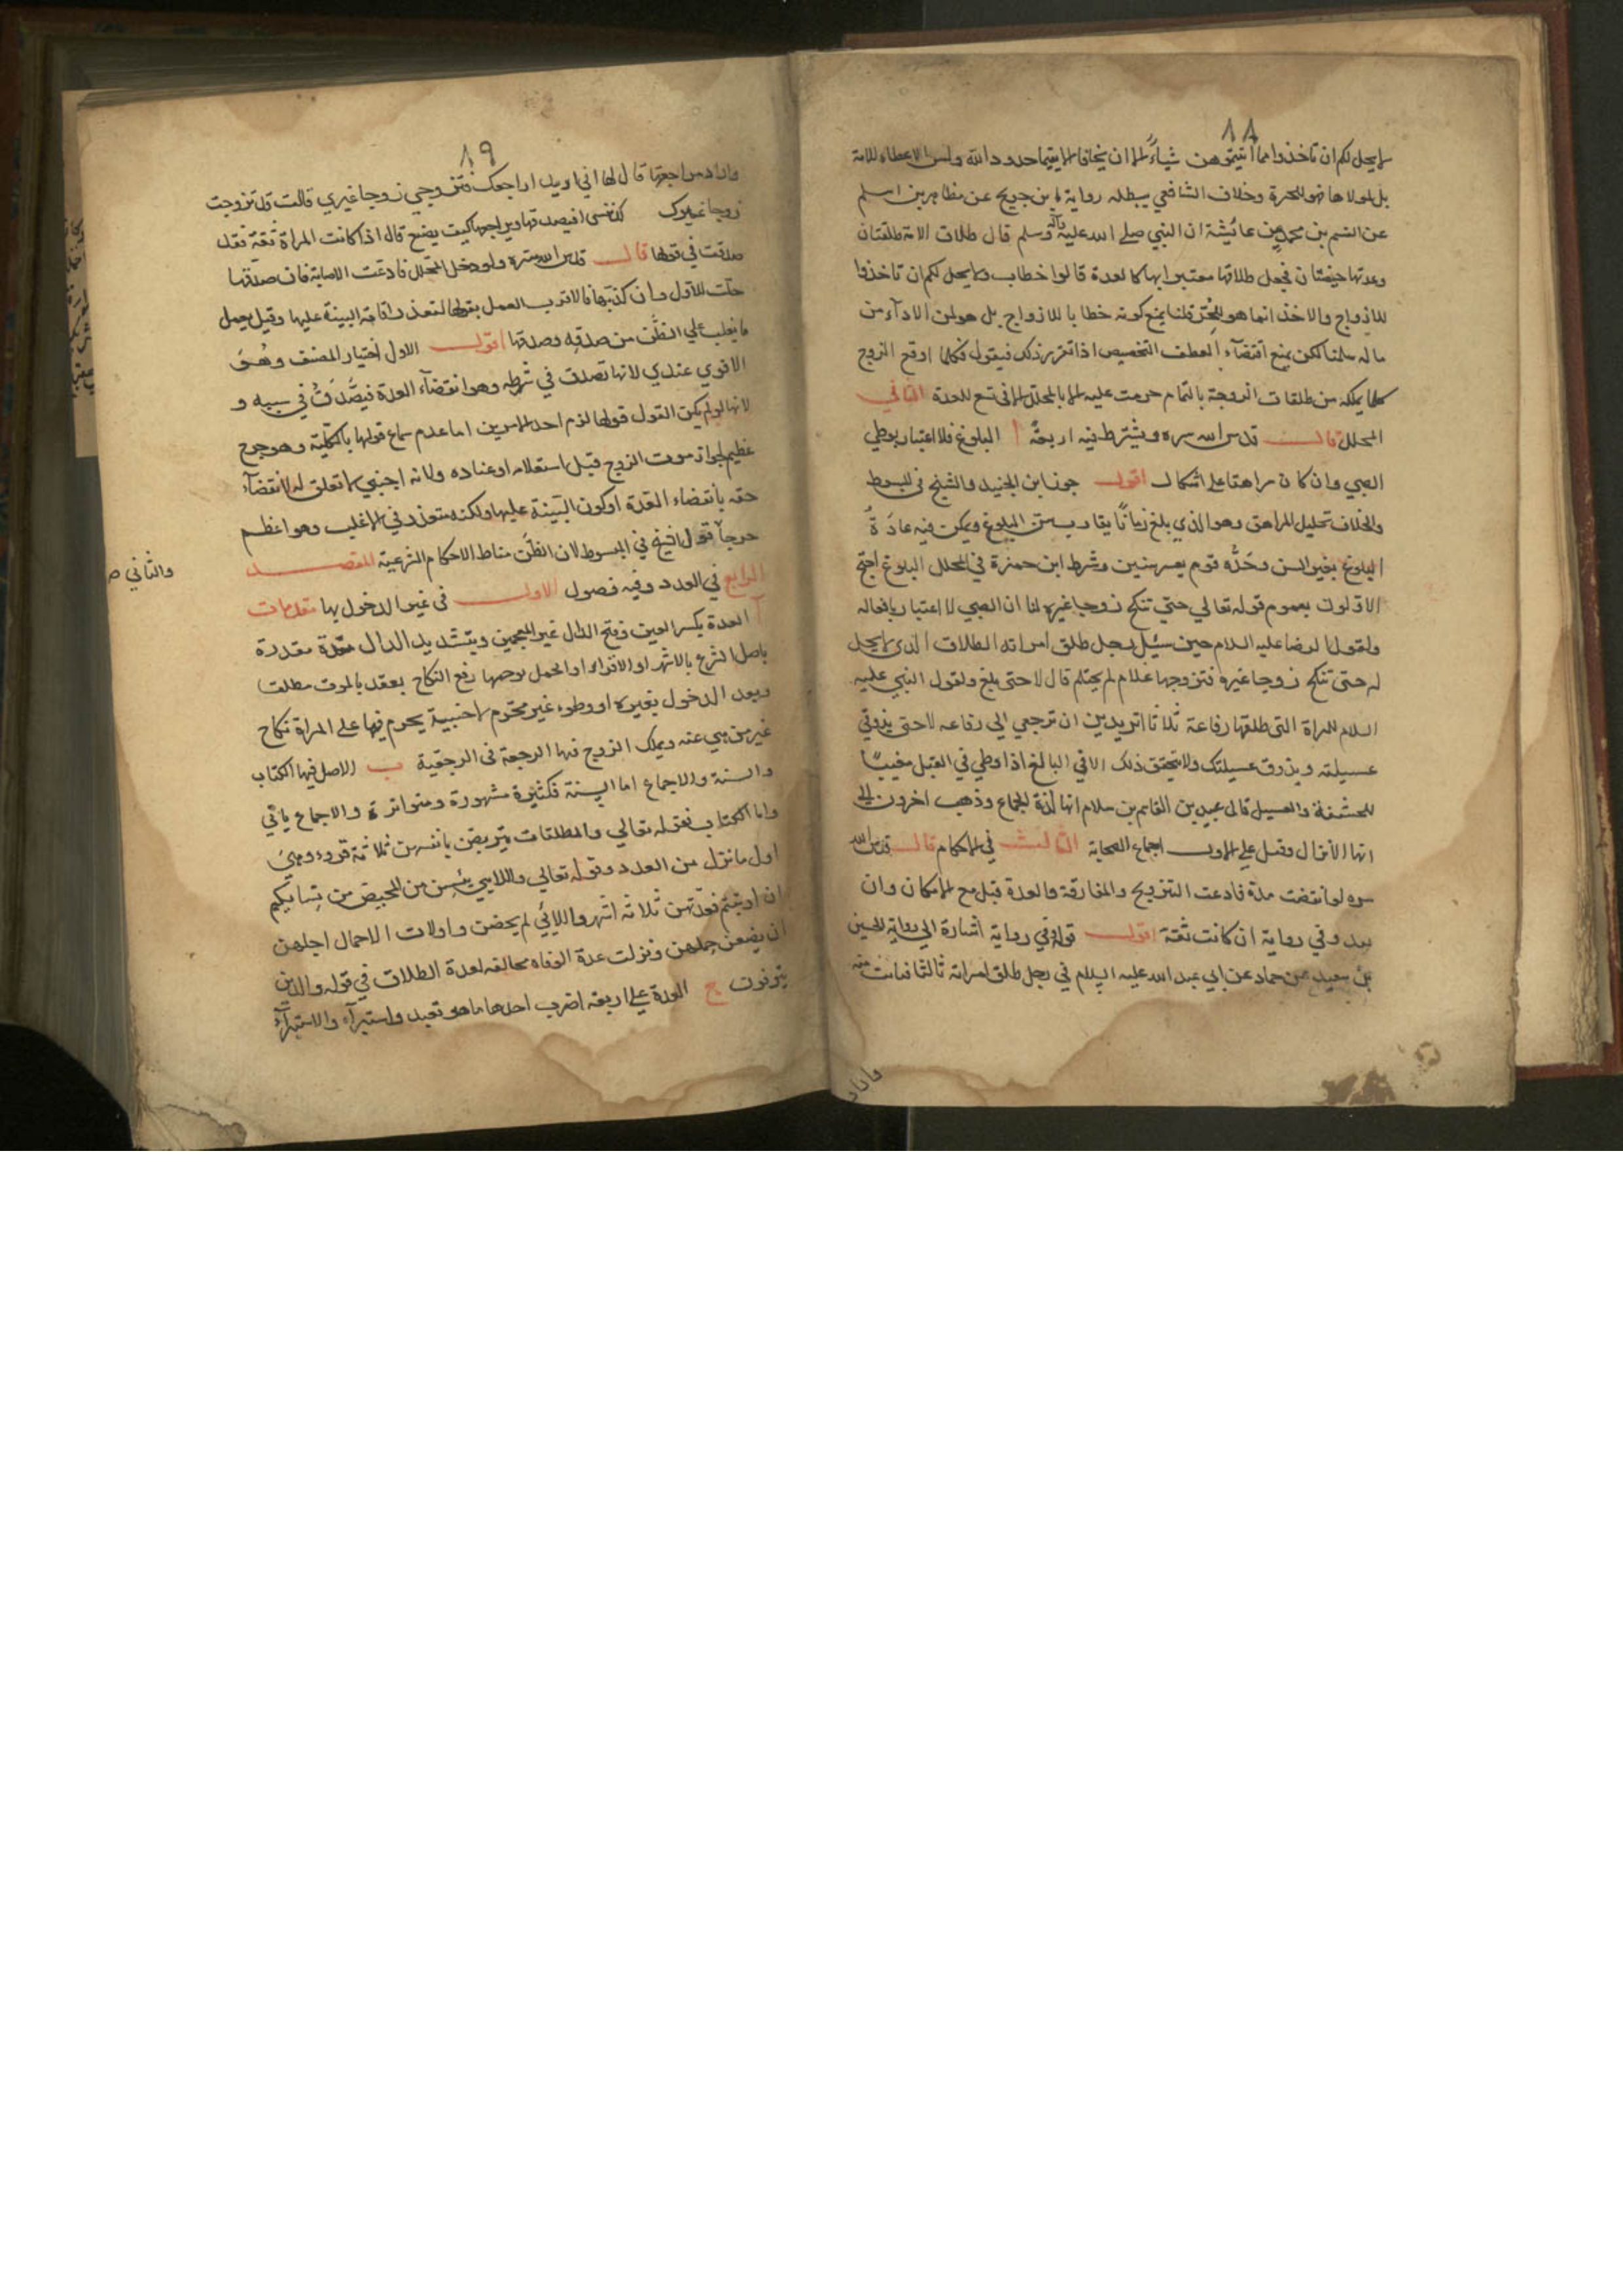 ٨٨
لا يحل لكم ان تاخذوا مما اتيتموهن شياً الا ان يخافا الا يقيما حدود الله وليس الاعطاء للامة
بل لمولاها فهو للحرة وخلاف الشافعي يبطله رواية ابن جريج عن مظاهر بن اسلم
عن القسم بن محمد عن عائيشة ان النبي صلى الله عليه وآله وسلم قال طلاق الامة طلقتان
وعدتها حيضتان فجعل طلاقها معتبرا بها كالعدة قالوا خطاب ولا يحل لكم ان تاخذوا
للازواج والاخذ انما هو للحر قلنا يمنع كونه خطابا للازواج بل هو لمن الاداء من
ماله سلمنا لكن يمنع اقتضآء العطف التخصيص اذا تقرر ذلك فيقول فكلما اوقع الزوج
كلما يملكه من طلقات الزوجة بالتمام حرمت عليه الا بالمحلل الا في تسع للعدة الثاني
المحلل قال قدس الله سره ويشترط فيه اربعة ا البلوغ فلا اعتبار بوطي
الصبي وان كان مراهقا على اشكال اقول جوز ابن الجنيد والشيخ في المبسوط
والخلاف تحليل المراهق وهو الذي بلغ زمانًا يقارب سن البلوغ ويمكن فيه عادَةً
البلوغ بغير السن وحَدَّه قوم بعسر سنين وشرط ابن حمزة في المحلل البلوغ احتج
الاولون بعموم قوله تعالي حتي تنكح زوجا غيره لنا ان الصبي لا اعتبار بافعاله
ولقول الرضا عليه السلام حين سئل رجل طلق امراته الطلاق الذي لا يحل
له حتى تنكح زوجا غيره فتزوجها غلام لم يحتلم قال لا حتى يبلغ ولقول النبي عليه
السلام للمراة التي طلقها رفاعة ثلاثا اتريدين ان ترجعي الي رفاعه لا حتى يذوقي
عسيلته ويذوق عسيلتك ولا يتحقق ذلك الا في البالغ اذا وطي في القبل مغيبًا
للحشفة والعسيل قال عبيد بن القاسم بن سلام انها لذة الجماع وذهب اخرون الي
انها الانزال وقبل على الاول اجماع الصحابة الثالث في الاحكام قال قدس الله
سره لو انقضت مدة فادعت التزويج والمفارقة والعدة قبل مع الامكان وان
بعد وفي رواية ان كانت ثقة اقول قوله وفي رواية اشارة الي رواية الحسين
بن سعيد عن حماد عن ابي عبد الله عليه السلام في رجل طلق امراته ثالثا فبانت منه
واراد
٨٩
واراد مراجعتها قال لها اني اريد اراجعك فتزوجي زوجا غيري قالت قد تزوجت
زوجا غيرك نفسى افيصدقها ويراجعها كيف يصنع قال اذا كانت المراة ثقة فقد
صدقت في قولها قال قدس الله سره ولو دخل المحلل فادعت الاصابة فان صدقها
حلت للاول وان كذبها فالاقرب العمل بقولها لتعذر اقامة البينة عليها وقيل يعمل
ما يغلب علي الظَّن من صدقه وصدقها اقول الاول اختيار المصنف وهُوَ
الاقوي عندي لانها تصدق في شرطه وهو انقضآء العدة فيصُدَقُ في سببه و
لانها لو لم يكن القول قولها لزم احد الامرين اما عدم سماع قولها بالكلّية وهو حرج
عظيم لجواز موت الزوج قبل استعلامه او عناده ولانه اجنبي لا تعلق له لانقضآء
حقه بانقضاء العدة او كون البيّنة عليها ولكنه متعذر في الاغلب وهو اعظم
حرجاً قول الشيخ في المبسوط لان الظَّن مناط الاحكام الشرعية المقصد
والثاني ص
الرابع في العدد وفيه فصول الاول فى غير المدخول بها مقدمات
آ العدة بكسر العين وفتح الدال غير المعجمين وبتشديد الدال مدّة مقدرة
باصل الشرع بالاشهر او الاقراء او الحمل يوجبها رفع النكاح بعقد بالموت مطلقا
وبعد الدخول بغيره او وطوء غير محترم لاجنبية يحرم فيها على المراة نكاح
غير من هي عنه ويملك الزوج فيها الرجعة فى الرجعية ب الاصل فيها الكتاب
والسنة والاجماع اما السنة فكثيرة مشهورة ومتواترة والاجماع ياتي
واما الكتاب فقوله تعالي والمطلقات يتربصن بانفسهن ثلاثة قروء وهيَ
اول ما نزل من العدد وقوله تعالي واللاىي يئسن من المحيض من نسايكم
ان ارتبتم فعدّتهن ثلاثة اشهر واللائي لم يحضن واولات الاحمال اجلهن
ان يضعن حملهن ونزلت عدة الوفاه مخالفه لعدة الطلاق في قوله والذين
يتوفون ج العدة على اربعه اضرب احدها ما هو تعبد واستبرآء والاستبرآء